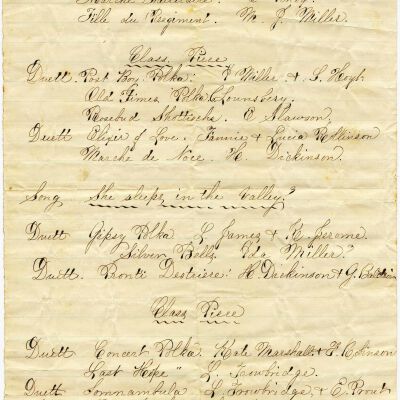 Fille du Regiment. M. J. Miller.
Class Piece
Duett. Post Boy Polka: F Miller & L. Hoyt.
Old Times Polka C Lounsbery.
Rosebud Shottische. C Slawson.
Duett Elixer of Love. Fannie & Lucia Rollinson
Marche de Noce. H. Dickinson.
Song She sleeps in the Valley.
Duett Gipsy Polka L. James & K. Jerome.
Silver Bells. Ida Miller.
Duett. H. Dickinson & G.
Class Piece
Duett Concert Polka. Kate Marshall & F.
Last Hope" L. Trowbridge.
Duett Somnambula L. Trowbridge & E. Prout